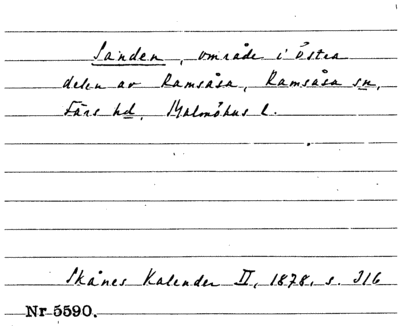 Sanden, område i östra
delen av Ramsåsa, Ramsåsa sn,
Färs hd, Malmöhus l.
Skånes Kalender II, 1878, s. 316
Nr 5590.